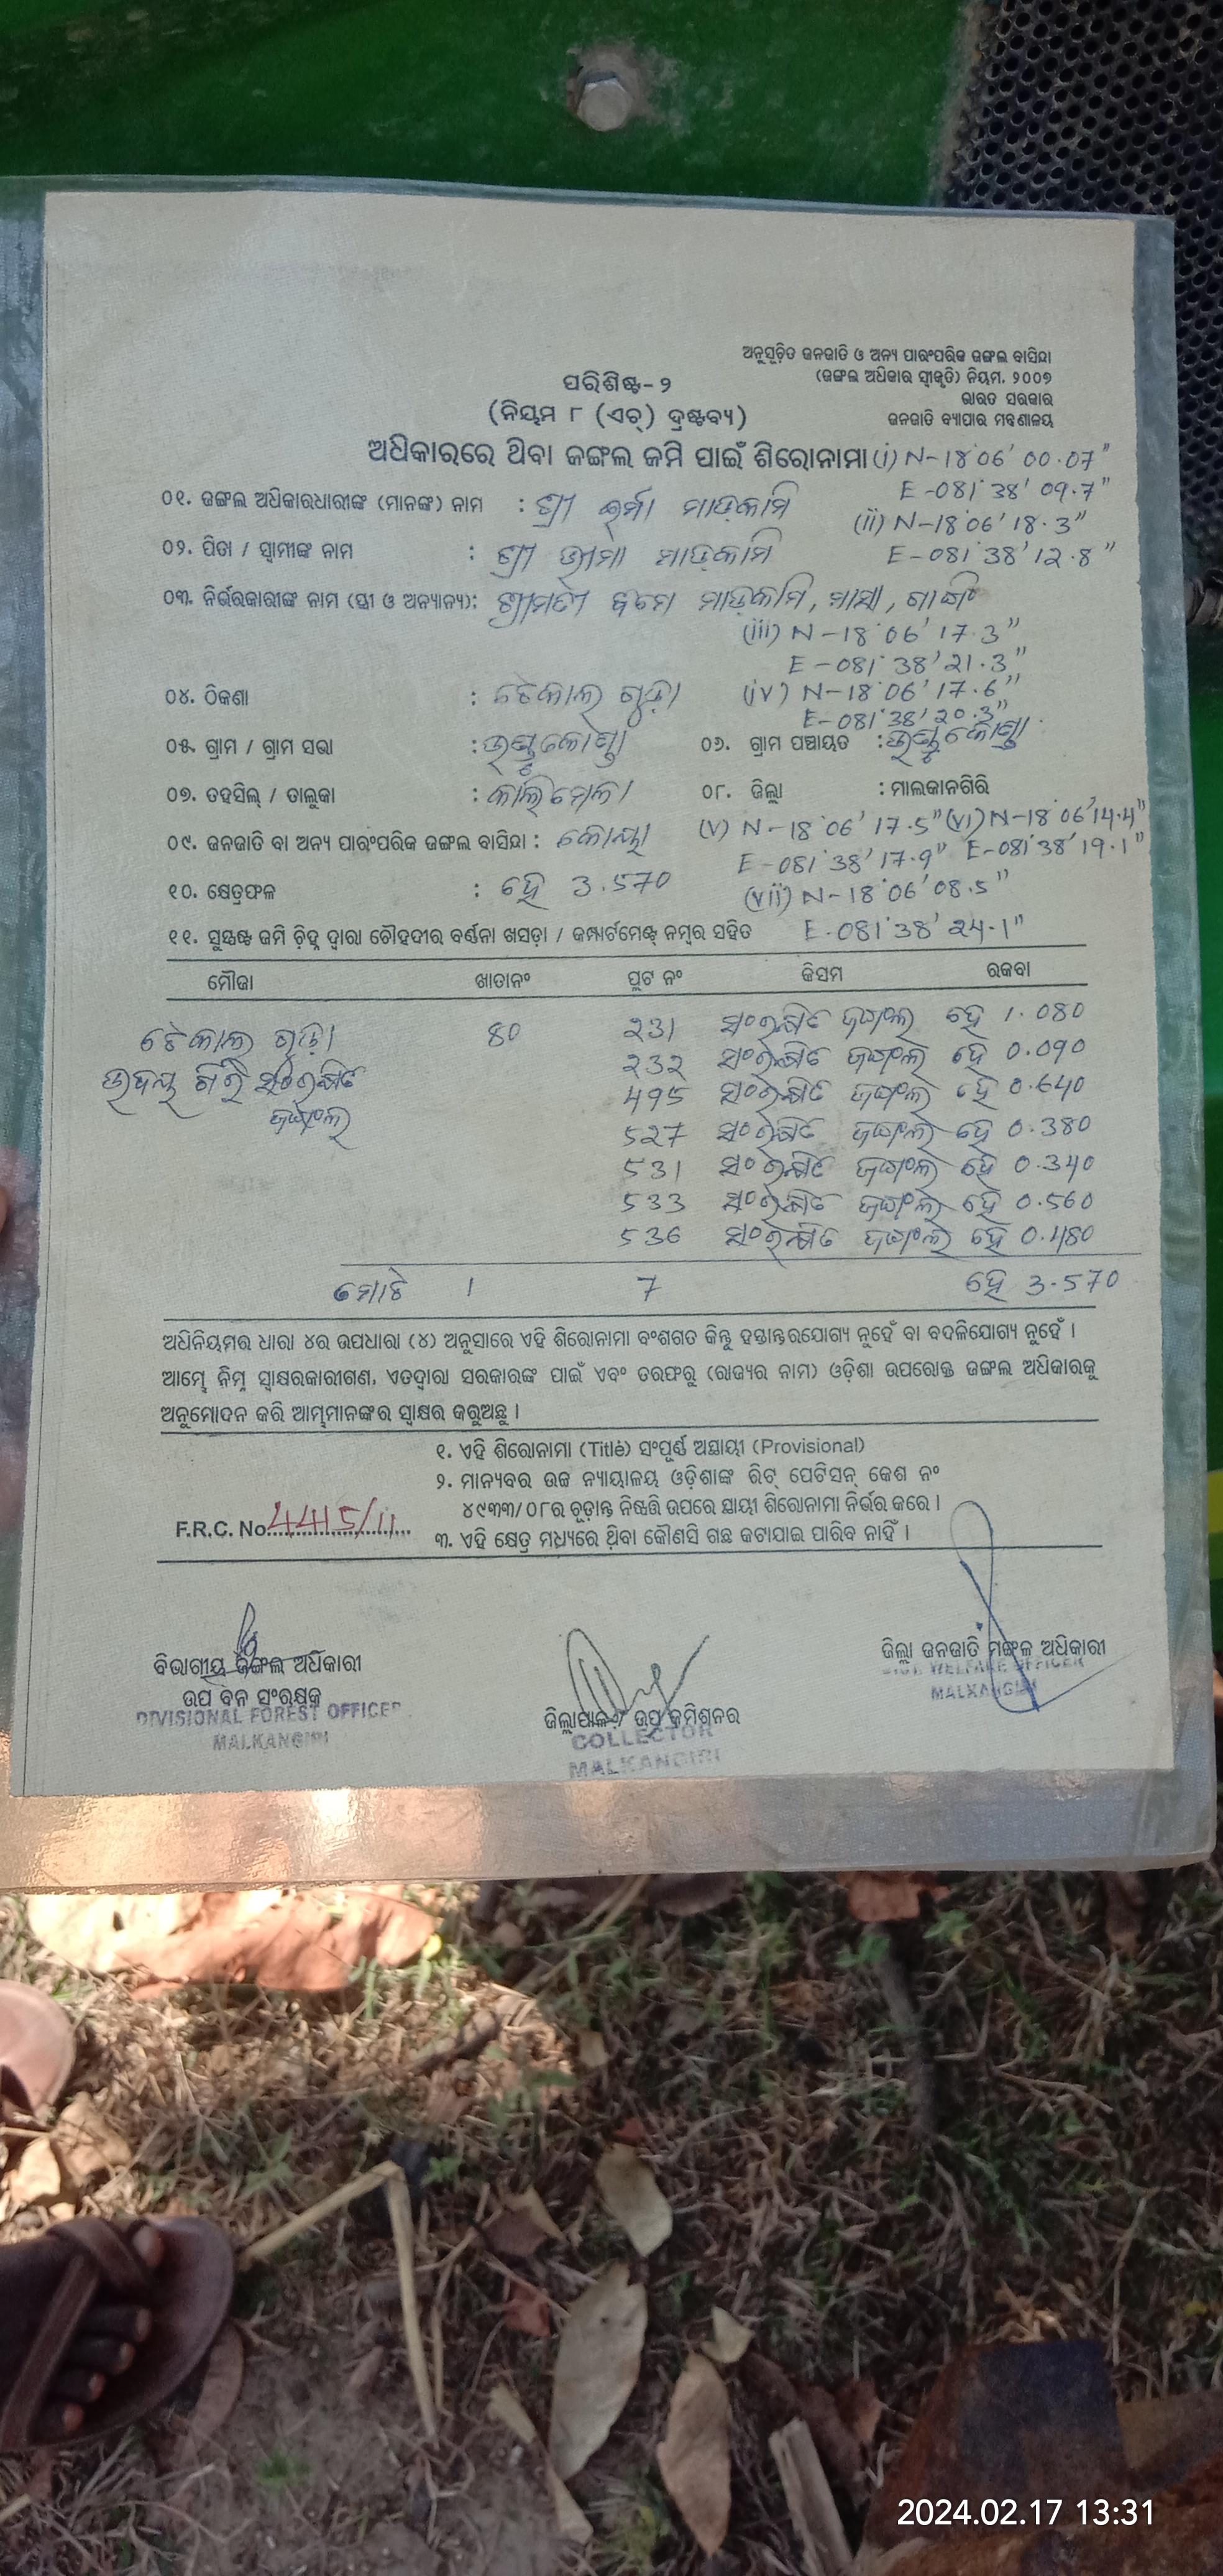 ଅନୁସୂଚିତ ଜନଜାତି ଓ ଅନ୍ୟ ପାରଂପରିକ ଜଙ୍ଗଲ ବାସିନ୍ଦା
(ଜଙ୍ଗଲ ଅଧିକାର ସ୍ୱୀକୃତି) ନିୟମ, ୨୦୦୭
ଭାରତ ସରକାର
ଜନଜାତି ବ୍ୟାପାର ମନ୍ତ୍ରଣାଳୟ
ପରିଶିଷ୍ଟ-୨
(ନିୟମ ୮ (ଏଚ୍) ଦ୍ରଷ୍ଟବ୍ୟ)
ଅଧିକାରରେ ଥିବା ଜଙ୍ଗଲ ଜମି ପାଇଁ ଶିରୋନାମା (i) N-18°06' 00.07"
E-081°38' 09.7"
୦୧. ଜଙ୍ଗଲ ଅଧିକାରଧାରୀଙ୍କ (ମାନଙ୍କ) ନାମ : ଶ୍ରୀ ଇର୍ମା ମାଡ଼କାମି
(ii) N-18°06' 18.3"
୦୨. ପିତା / ସ୍ୱାମୀଙ୍କ ନାମ : ଶ୍ରୀ ଭୀମା ମାଡ଼କାମି E-081°38' 12.8"
୦୩. ନିର୍ଭରକାରୀଙ୍କ ନାମ (ସ୍ତ୍ରୀ ଓ ଅନ୍ୟାନ୍ୟ): ଶ୍ରୀମତୀ ମାଡ଼କାମି,
(iii) N-18°06' 17.3"
E-081°38' 21.3"
୦୪. ଠିକଣା : ଟେକାଲ ଗୁଡ଼ା (iv) N-18°06' 17.6"
E-081°38' 20.3"
୦୫. ଗ୍ରାମ / ଗ୍ରାମ ସଭା : ୦୬. ଗ୍ରାମ ପଞ୍ଚାୟତ :
୦୭. ତହସିଲ୍ / ତାଲୁକା : କାଲିମେଳା ୦୮. ଜିଲ୍ଲା : ମାଲକାନଗିରି
(v) N-18°06' 17.5" (vi) N-18°06' 14.4"
୦୯. ଜନଜାତି ବା ଅନ୍ୟ ପାରଂପରିକ ଜଙ୍ଗଲ ବାସିନ୍ଦା : କୋୟା
E-081°38' 17.9" E-081°38' 19.1"
୧୦. କ୍ଷେତ୍ରଫଳ : ହେ 3.570 (vii) N-18°06' 08.5"
୧୧. ସୁସ୍ପଷ୍ଟ ଜମି ଚିହ୍ନ ଦ୍ୱାରା ଚୌହଦୀର ବର୍ଣ୍ଣନା ଖସଡ଼ା / କମ୍ପାର୍ଟମେଣ୍ଟ୍ ନମ୍ବର ସହିତ E-081°38' 24.1"
ମୌଜା ଖାତାନଂ ପ୍ଲଟ ନଂ କିସମ ରକବା
ଟେକାଲ ଗୁଡ଼ା 80 231 ସଂରକ୍ଷିତ ଜଙ୍ଗଲ ହେ 1.080
ଉଦୟ ଗିରି ସଂରକ୍ଷିତ 232 ସଂରକ୍ଷିତ ଜଙ୍ଗଲ ହେ 0.090
ଜଙ୍ଗଲ 495 ସଂରକ୍ଷିତ ଜଙ୍ଗଲ ହେ 0.640
527 ସଂରକ୍ଷିତ ଜଙ୍ଗଲ ହେ 0.380
531 ସଂରକ୍ଷିତ ଜଙ୍ଗଲ ହେ 0.340
533 ସଂରକ୍ଷିତ ଜଙ୍ଗଲ ହେ 0.560
536 ସଂରକ୍ଷିତ ଜଙ୍ଗଲ ହେ 0.480
ମୋଟ 1 7 ହେ 3.570
ଅଧିନିୟମର ଧାରା ୪ର ଉପଧାରା (୪) ଅନୁସାରେ ଏହି ଶିରୋନାମା ବଂଶଗତ କିନ୍ତୁ ହସ୍ତାନ୍ତରଯୋଗ୍ୟ ନୁହେଁ ବା ବଦଳିଯୋଗ୍ୟ ନୁହେଁ ।
ଆମ୍ଭେ ନିମ୍ନ ସ୍ୱାକ୍ଷରକାରୀଗଣ, ଏତଦ୍ୱାରା ସରକାରଙ୍କ ପାଇଁ ଏବଂ ତରଫରୁ (ରାଜ୍ୟର ନାମ) ଓଡ଼ିଶା ଉପରୋକ୍ତ ଜଙ୍ଗଲ ଅଧିକାରକୁ
ଅନୁମୋଦନ କରି ଆମ୍ଭମାନଙ୍କର ସ୍ୱାକ୍ଷର କରୁଅଛୁ ।
୧. ଏହି ଶିରୋନାମା (Title) ସଂପୂର୍ଣ୍ଣ ଅସ୍ଥାୟୀ (Provisional)
୨. ମାନ୍ୟବର ଉଚ୍ଚ ନ୍ୟାୟାଳୟ ଓଡ଼ିଶାଙ୍କ ରିଟ୍ ପେଟିସନ୍ କେଶ ନଂ
୪୯୩୩/୦୮ର ଚୂଡ଼ାନ୍ତ ନିଷ୍ପତ୍ତି ଉପରେ ସ୍ଥାୟୀ ଶିରୋନାମା ନିର୍ଭର କରେ ।
F.R.C. No. 4415/11
୩. ଏହି କ୍ଷେତ୍ର ମଧ୍ୟରେ ଥିବା କୌଣସି ଗଛ କଟାଯାଇ ପାରିବ ନାହିଁ ।
ଜିଲ୍ଲା ଜନଜାତି ମଙ୍ଗଳ ଅଧିକାରୀ
WELFARE OFFICER
MALKANGIRI
ବିଭାଗୀୟ ଜଙ୍ଗଲ ଅଧିକାରୀ
ଉପ ବନ ସଂରକ୍ଷକ
DIVISIONAL FOREST OFFICER
MALKANGIRI
ଜିଲ୍ଲାପାଳ / ଉପ କମିଶନର
COLLECTOR
MALKANGIRI
2024.02.17 13:31